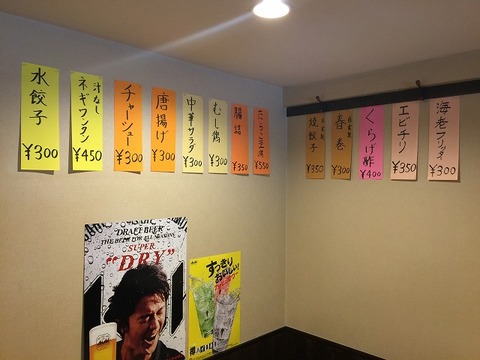 水餃子
¥300
汁なし
ネギワンタン
¥450
チャーシュー
¥300
唐揚げ
¥300
中華サラダ
¥300
むし鶏
¥300
¥350
¥550
自家製
焼餃子
¥350
自家製
春巻
¥300
くらげ酢
¥400
エビチリ
¥350
海老フリッター
¥300
ASAHI
DRAFT BEER
THE BEER FOR ALL SEASONS
SUPER
"DRY"
Asahi
すっきり
おいしい!
樽ハイ